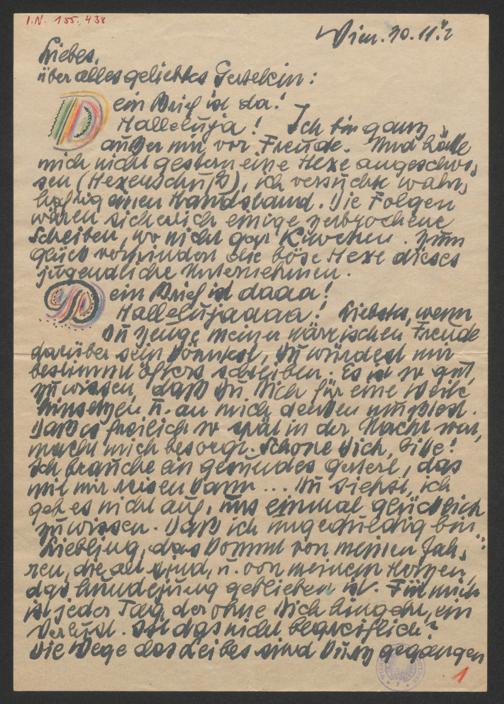 I.N. 155.438
Wien. 30.11.
Liebes,
über alles geliebtes Gerstelein:
Dein Brief ist da!
Halleluja! Ich bin ganz
außer mir vor Freude. Und hätte
mich nicht gestern eine Hexe angeschos-
sen (Hexenschuß), ich versuchte wahr,
haftig einen Handstand. Die Folgen
wären sicherlich einige zerbrochene
Scheiben, wo nicht gar Knochen. Zum
Glück verhindert die böse Hexe dieses
jugendliche Unternehmen.
Dein Brief ist daaa!
Hallelujaaaa! Liebste, wenn
Du Zeuge meiner närrischen Freude
darüber sein könntest, Du würdest mir
bestimmt öfters schreiben. Es ist so gut,
zu wissen, daß Du Dich für eine Weile
hinsetzen u. an mich denken mußtest.
Daß es freilich so spät in der Nacht war,
macht mich besorgt. Schone Dich, bitte!
Ich brauche ein gesundes das
mit mir reisen kann ... Du siehst, ich
geb es nicht auf, uns einmal glücklich
zu wissen. Daß ich ungeduldig bin
Liebling, das kommt von meinen Jah-
ren, die alt sind, u. von meinem Herzen,
das hundejung geblieben ist. Für mich
ist jeder Tag der ohne Dich hingeht, ein
Verlust. Ist das nicht begreiflich?
Die Wege des Leibes sind gegangen
1